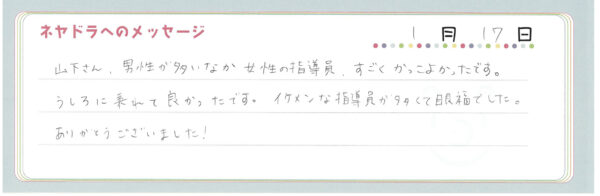 ネヤドラへのメッセージ 1月17日
山下さん、男性が多いなか女性の指導員、すごくかっこよかったです。
うしろに乗れて良かったです。イケメンな指導員が多くて眼福でした。
ありがとうございました!